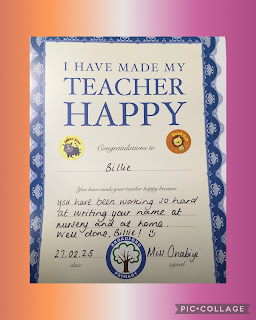 I HAVE MADE MY
TEACHER
HAPPY
Congratulations to
Billie
You have made your teacher happy because
you have been working so hard
at writing your name at
nursery and at home.
Well done, Billie! ☺
27.02.25 Miss Onabiye
date signed
PRIMARY
PIC•COLLAGE